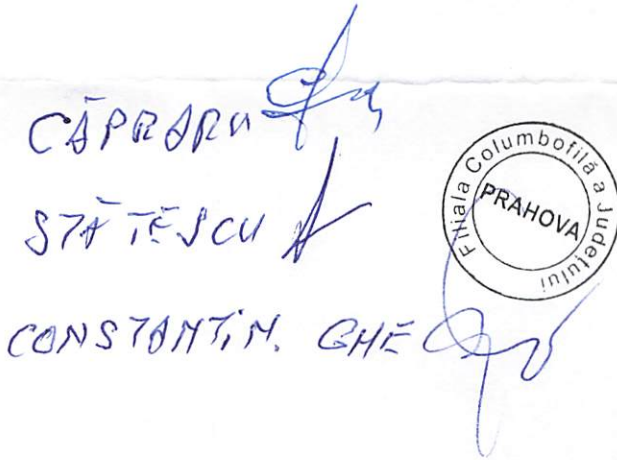 CĂPRARU
STĂTESCU
CONSTANTIN. GHE
Filiala Columbofilă a Județului
PRAHOVA